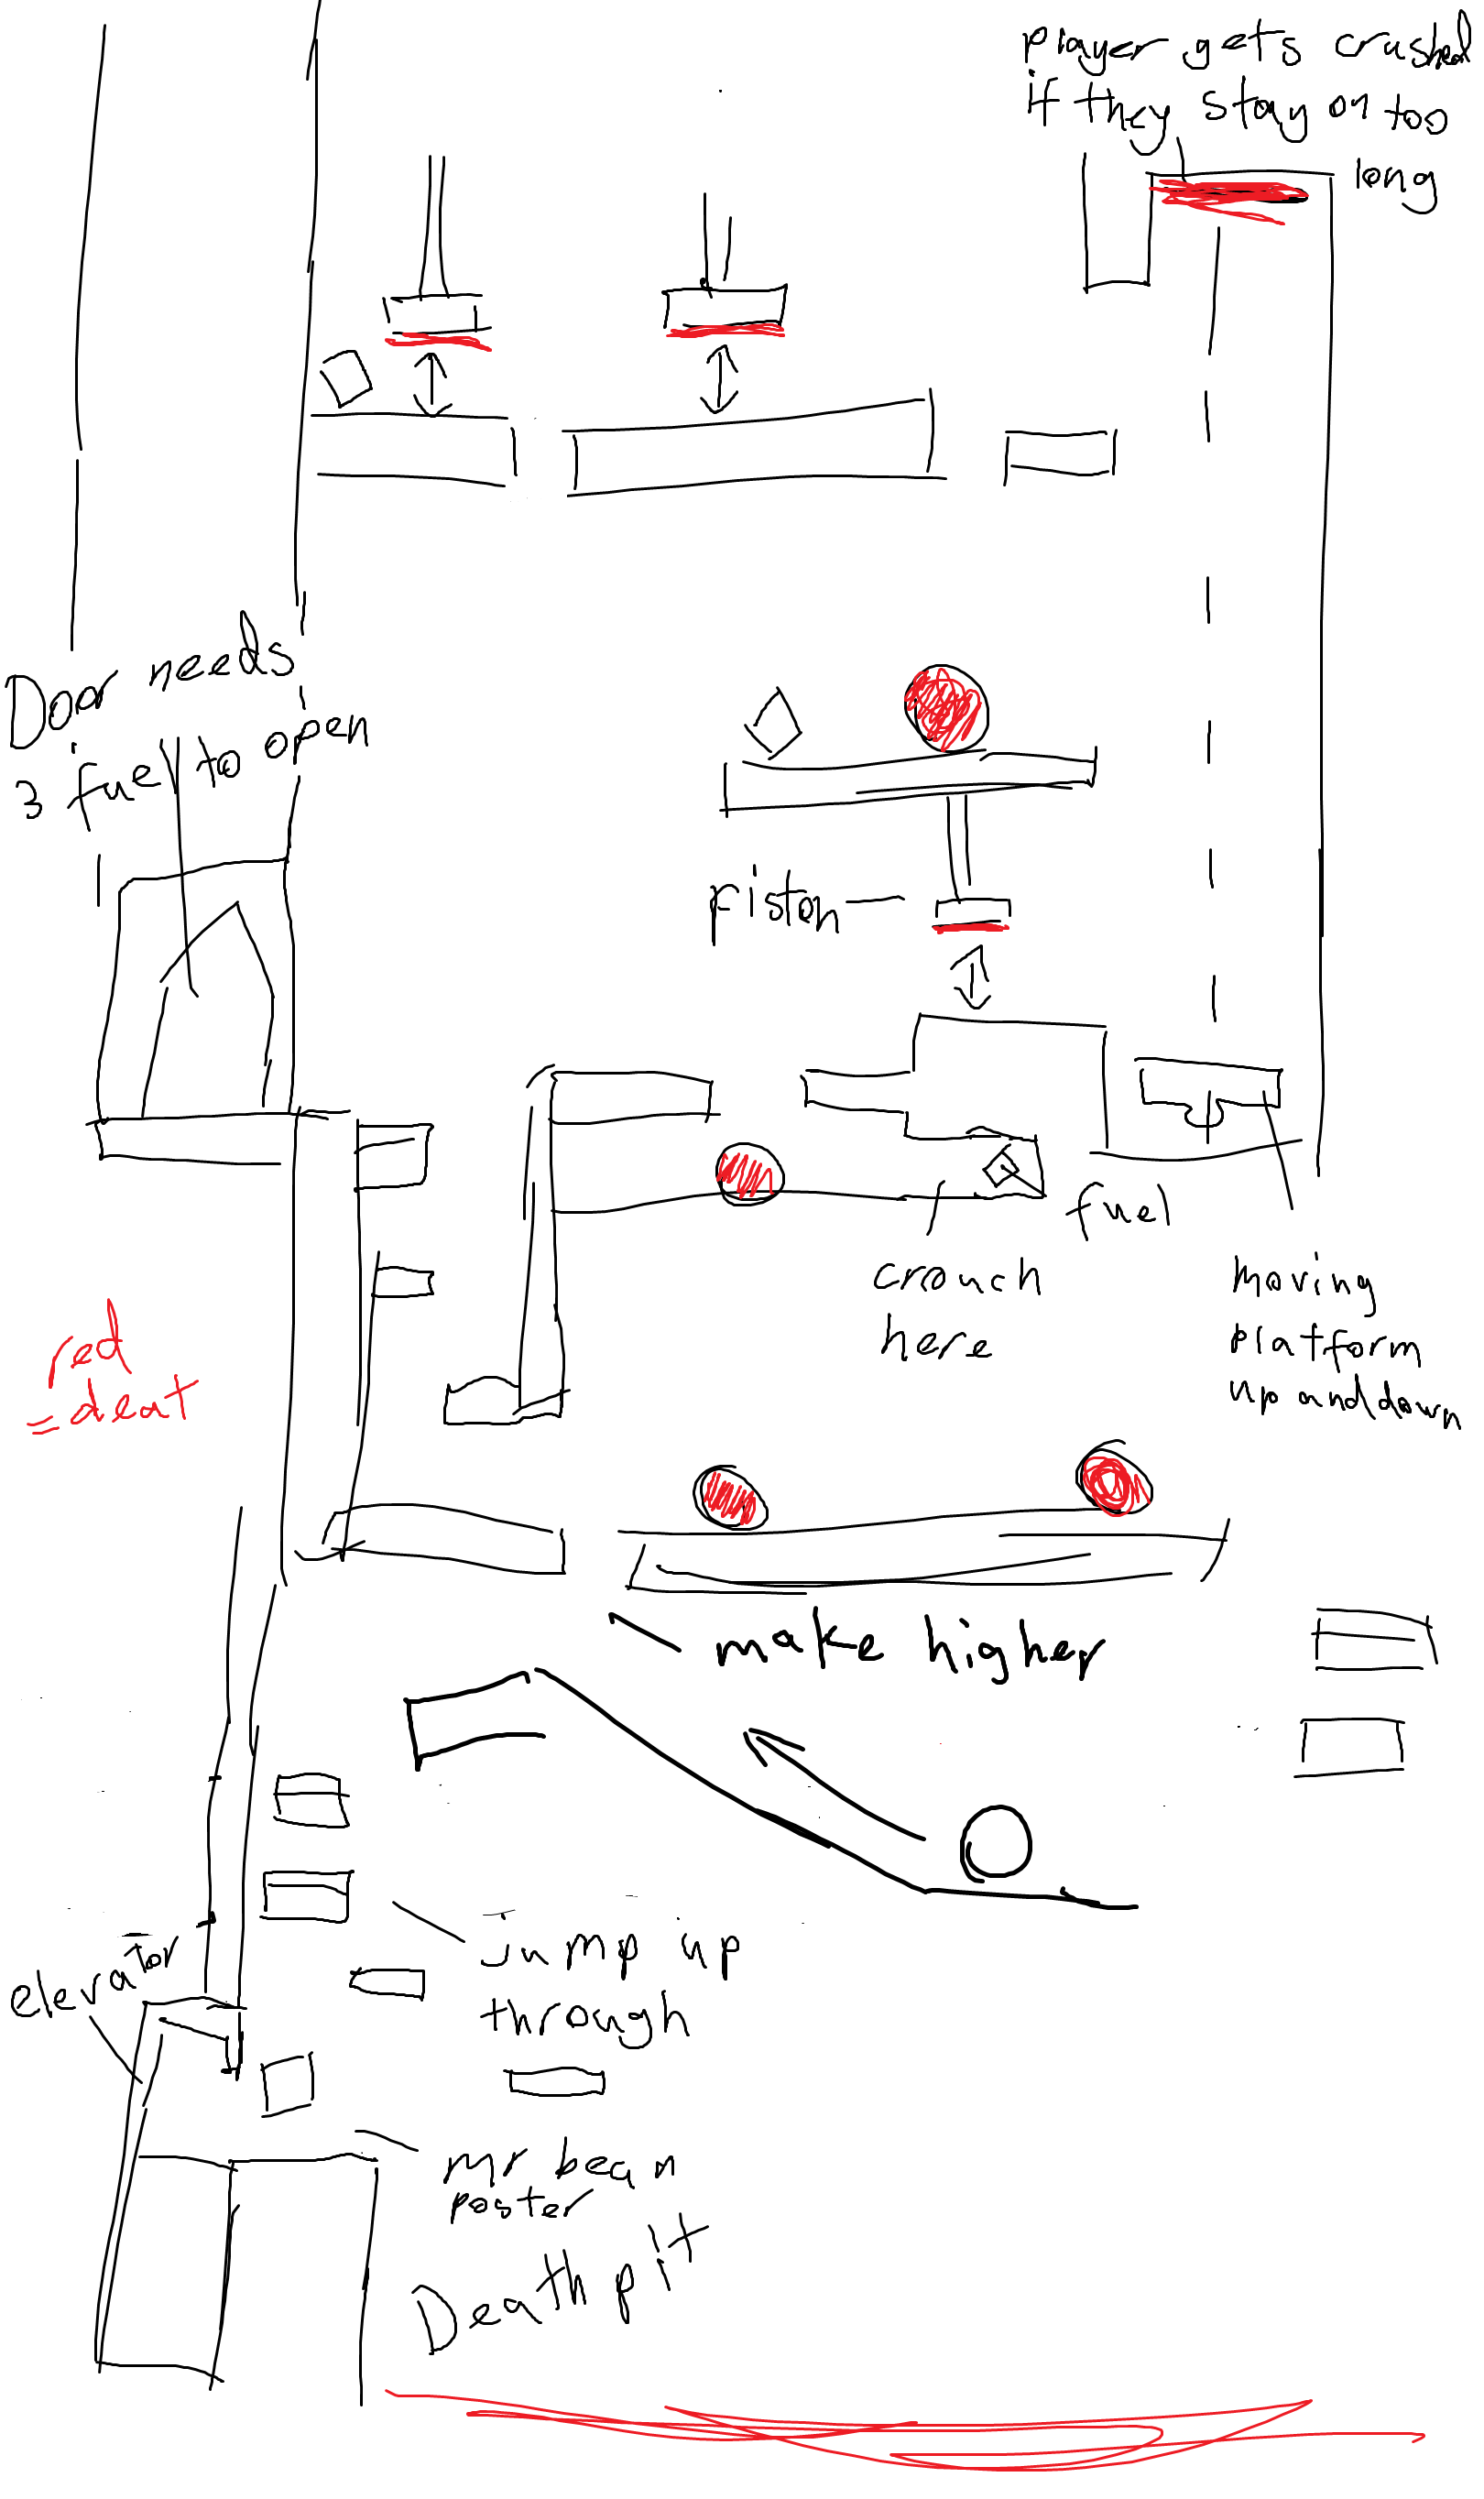 player gets crushd
if they stay on too
long
Door needs
3 fuel to open
piston
fuel
crouch
here
moving
platform
up and down
red
= deat
make higher
elevator
Jump up
through
mr bean
poster
Death pit